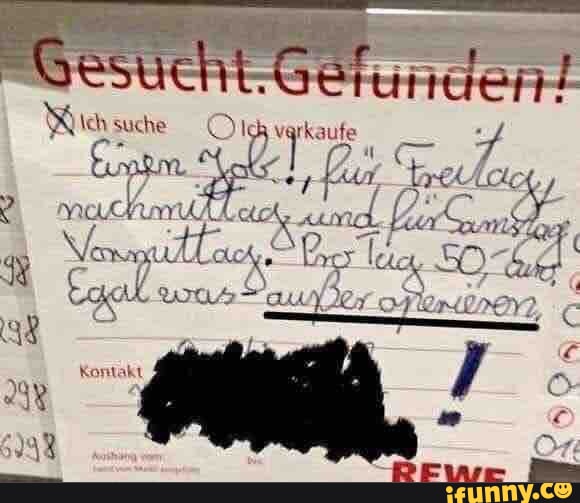 Gesucht.Gefunden!
Ich suche Ich verkaufe
Einen Job!, für Freitag,
nachmittag und für Samstag
Vormittag. Pro Tag 50,- Euro.
Egal was - außer operieren
!
Kontakt
Aushang vom:
REWE
298
298
6298
ifunny.co